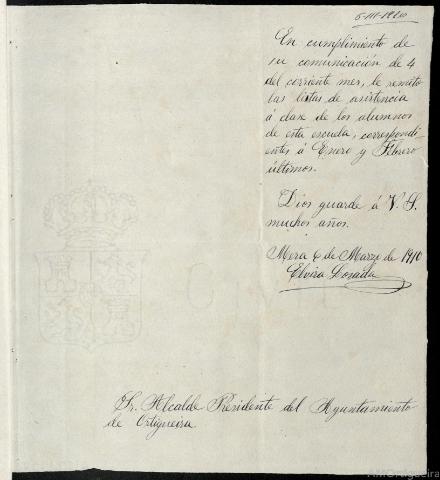 6-III-1910
En cumplimiento de
su comunicación de 4
del corriente mes, le remito
las listas de asistencia
á clase de los alumnos
de esta escuela, correspondi-
entes á Enero y Febrero
últimos.
Dios guarde á V. S.
muchos años.
Mera 6 de Marzo de 1910
Elvira Dosada
Sr. Alcalde Presidente del Ayuntamiento
de Ortigueira
AMOrtigueira